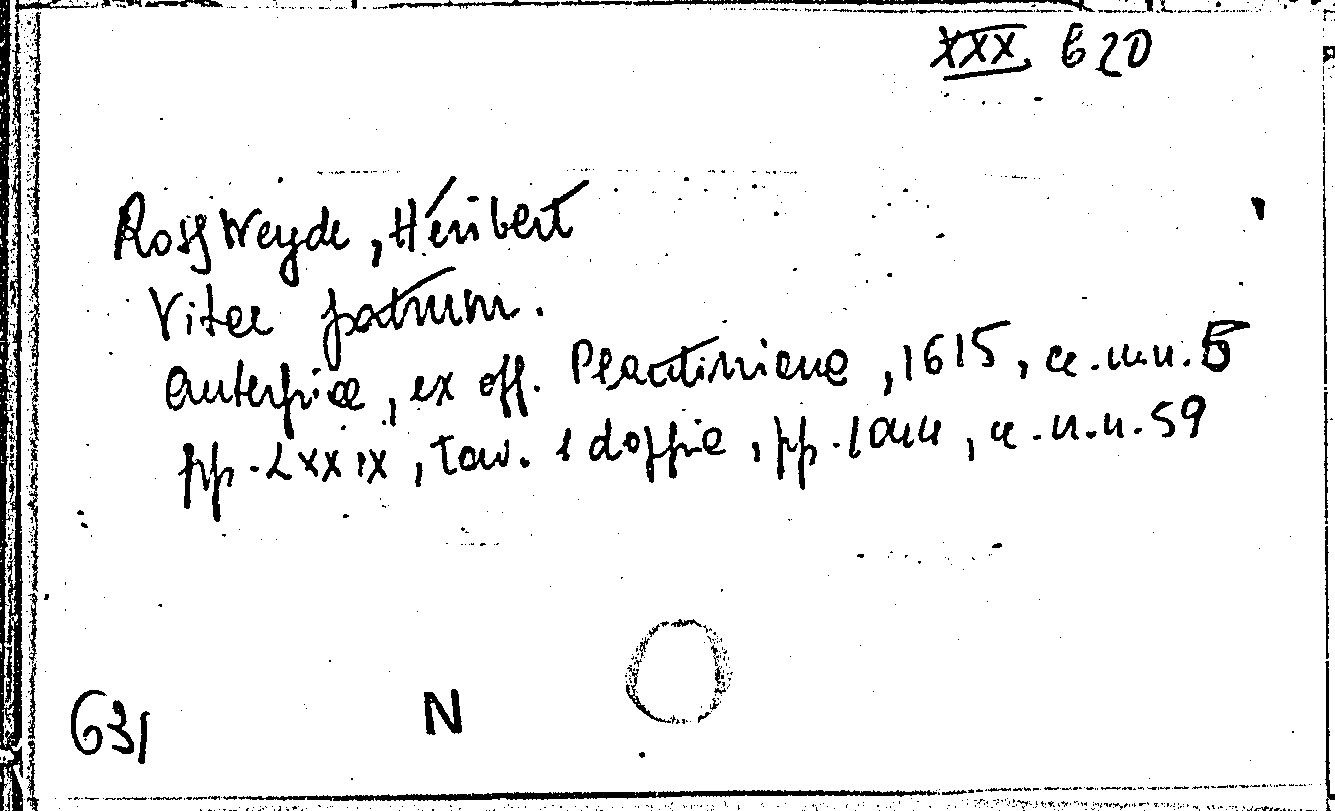 XXX. 620
Rossweyde, Héribert
Vitae patrum.
Antuerpiae, ex off. Plantiniana, 1615, cc. n. n. 5
pp. LXXIX, tav. 1 doppia, pp. , cc. n. n. 59
631 N